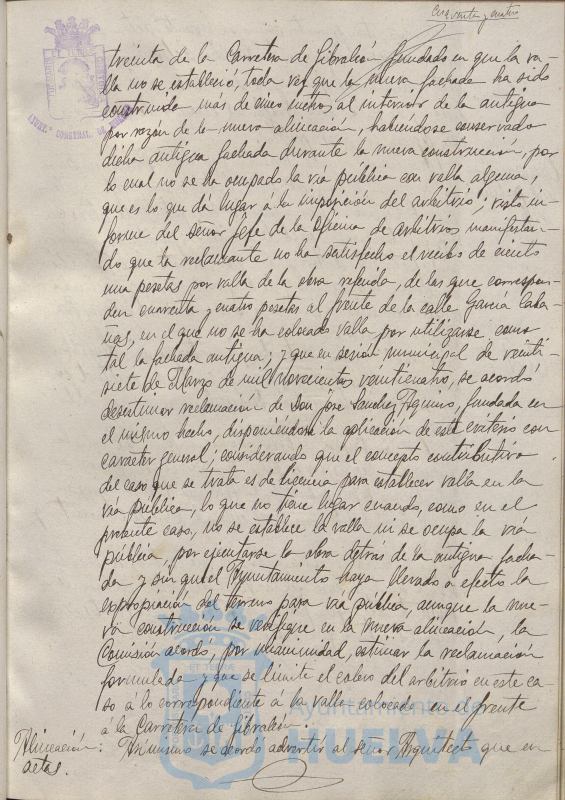 Cincuenta y cuatro
treinta de la Carretera de Gibraleón fundado en que la va-
lla no se estableció, toda vez que la nueva fachada ha sido
construida más de cinco metros al interior de la antigua
por razón de la nueva alineación, habiéndose conservado
dicha antigua fachada durante la nueva construcción, por
lo cual no se ha ocupado la vía pública con valla alguna,
que es lo que dá lugar á la imposición del arbitrio; visto in-
forme del señor Jefe de la Oficina de arbitrios manifestan-
do que la reclamante no ha satisfecho el recibo de ciento
una pesetas por valla de la obra referida, de las que correspon-
den cuarenta y cuatro pesetas al frente de la calle García Caba-
ñas, en el que no se ha colocado valla por utilizarse como
tal la fachada antigua; y que en sesión municipal de veinti-
siete de Marzo de mil novecientos veinticuatro, se acordó
desestimar reclamación de Don José Sanchez Aquino, fundada en
el mismo hecho, disponiéndose la aplicación de este criterio con
caracter general; considerando que el concepto contributivo
del caso que se trata es de licencia para establecer valla en la
vía pública, lo que no tiene lugar cuando, como en el
presente caso, no se establece la valla ni se ocupa la vía
pública, por ejecutarse la obra detrás de la antigua facha-
da y sin que el Ayuntamiento haya llevado a efecto la
expropiación del terreno para vía pública, aunque la nue-
va construcción se verifique en la nueva alineación, la
Comisión acordó, por unanimidad, estimar la reclamación
formulada y que se limite el cobro del arbitrio en este ca-
so á lo correspondiente á la valla colocada en el frente
á la Carretera de Gibraleón.
Alineación: Asimismo se acordó advertir al señor Arquitecto que en
actas.
Ayuntamiento de
HUELVA